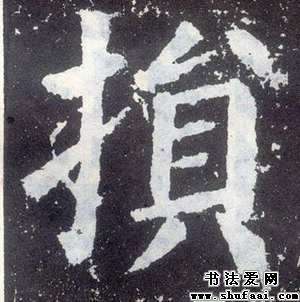 損
书法爱网
www.shufaai.com